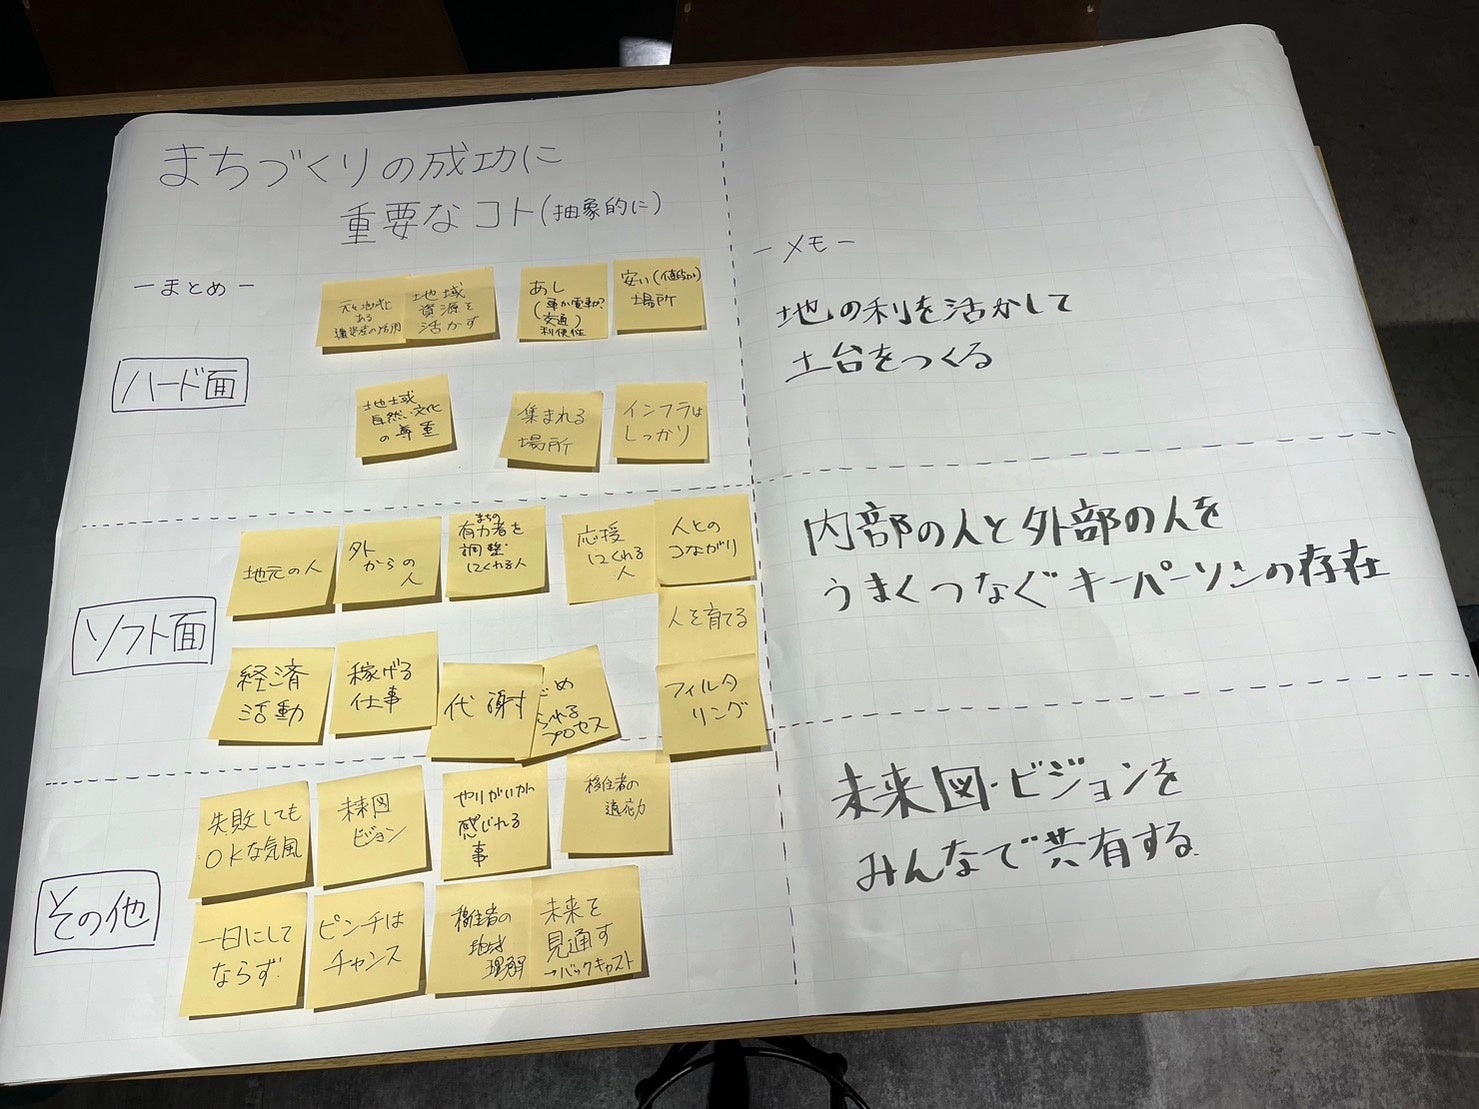 まちづくりの成功に
重要なコト(抽象的に)
ーまとめー
ハード面
元々地域に
ある
の活用
地域
資源を
活かす
あし
(車か電車か?
(交通)
利便性
安い(値段が)
場所
地域
自然・文化
の尊重
集まれる
場所
インフラは
しっかり
ソフト面
地元の人
外
からの
人
まちの
有力者を
調整
してくれる人
応援
してくれる
人
人との
つながり
人を育てる
フィルタ
リング
経済
活動
稼げる
仕事
代謝
プロセス
その他
失敗しても
OKな気風
未来図
ビジョン
やりがいが
感じれる
事
移住者の
適応力
一日にして
ならず
ピンチは
チャンス
移住者の
地域
理解
未来を
見通す
→バックキャスト
ーメモー
地の利を活かして
土台をつくる
内部の人と外部の人を
うまくつなぐキーパーソンの存在
未来図・ビジョンを
みんなで共有する